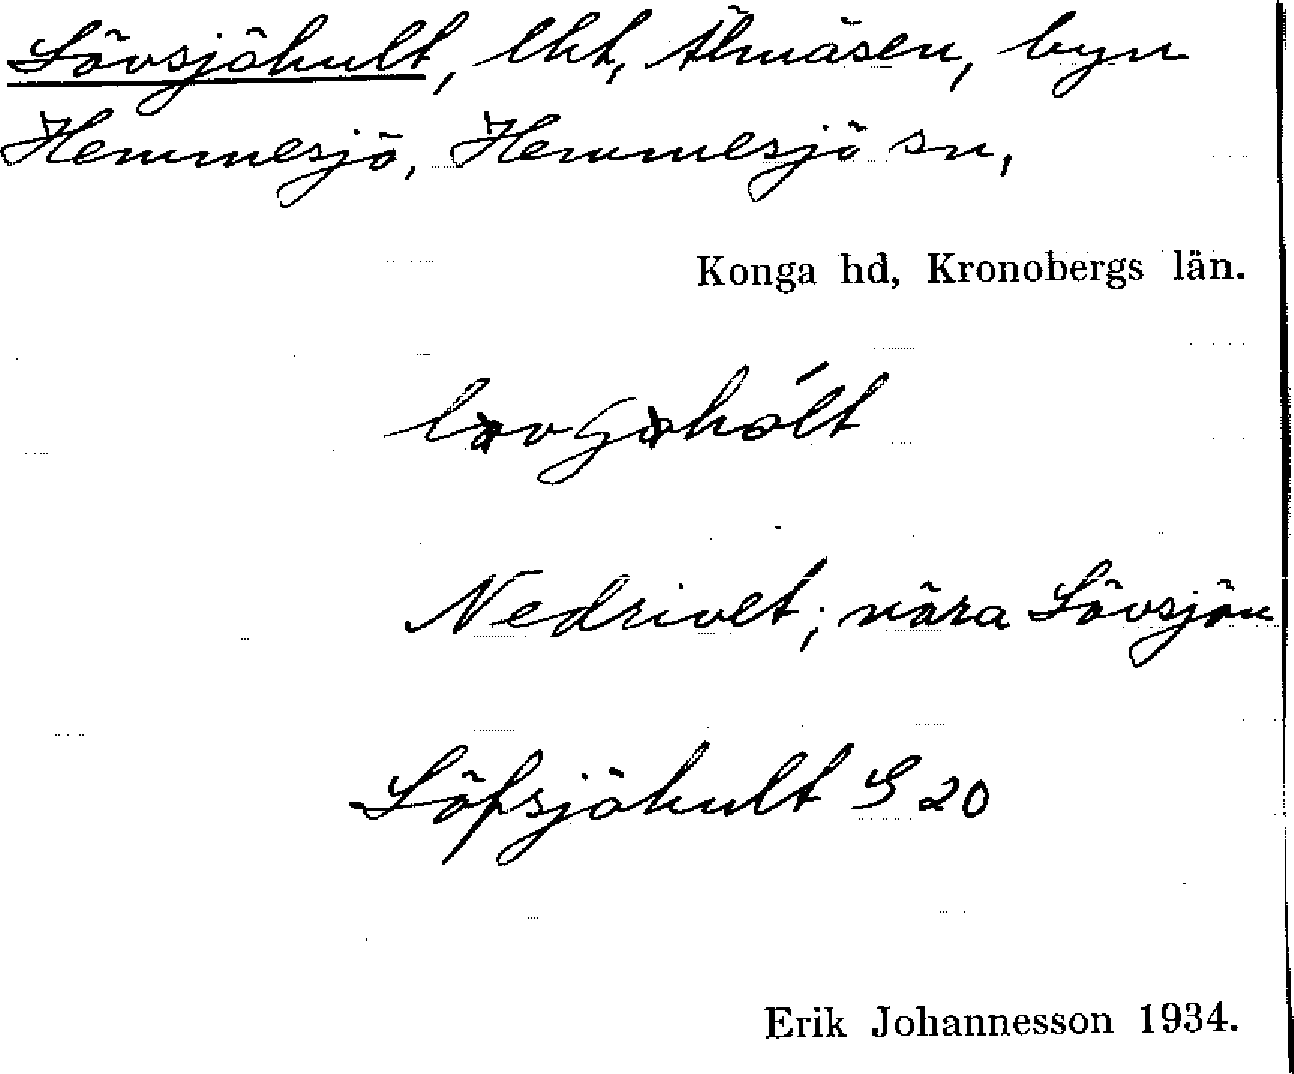 Lövsjöhult, lht, Älmåsen, byn
Hemmesjö, Hemmesjö sn,
Konga hd, Kronobergs län.
Nedrivet; nära Lövsjön
Löfsjöhult S 20
Erik Johannesson 1934.